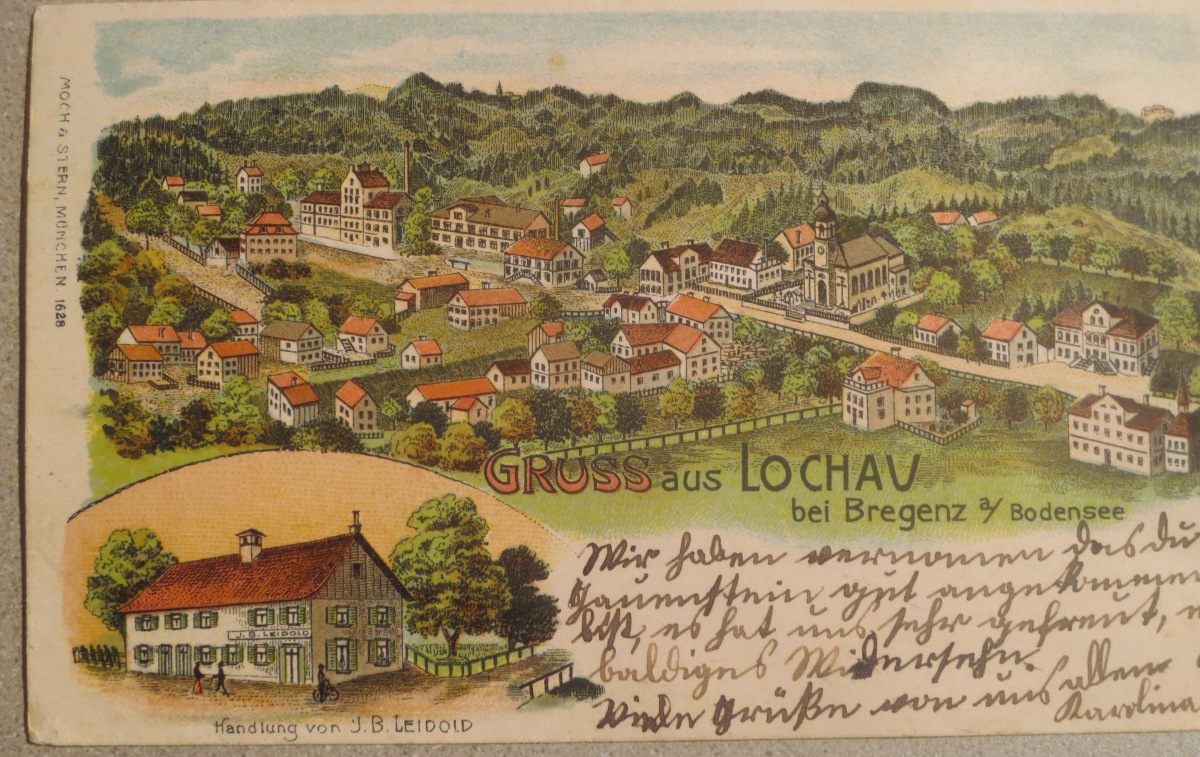 MOCH & STERN, MÜNCHEN 1628
GRUSS aus LOCHAU
bei Bregenz a/ Bodensee
Wir haben vernomen das du
Gauenstein gut angekommen
bist, es hat uns sehr gefreut,
baldiges Widersehn.
Viele Grüße von uns allen
Karolina
J.B. LEIDOLD
Handlung von J.B. LEIDOLD